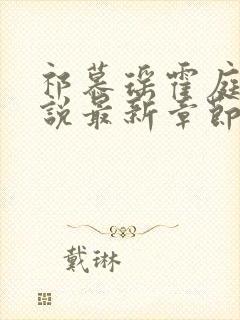 祁慕瑶霍庭
说最新章节
戴琳